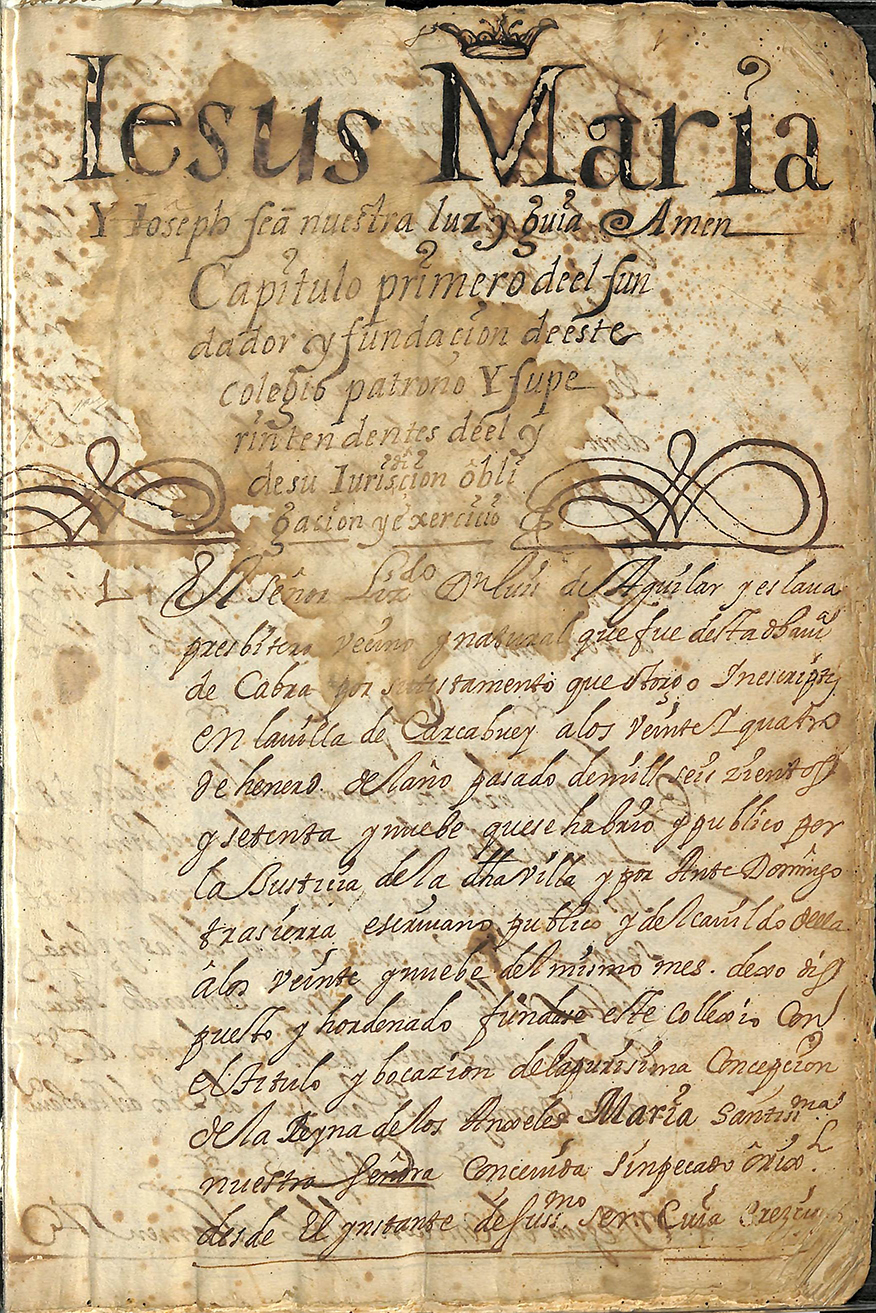 Iesus Maria
Y Ioseph seā nuestra luz y guia Amen
Capitulo primero deel fun
dador y fundaçion deeste
colegio patrono Y supe
rintendentes deel y
desu Iurisçion obli
gacion yexercicio
1 El Señor Lizdo Dn Luis de Aguilar y eslava
presbitero vecino y natural que fue desta dha
de Cabra por sutestamento que otorgo Inescriptis
en lauilla de Carcabuey alos veinte Y quatro
de henero delaño pasado demill seis zientos
y setenta ynuebe quese habrio y publico por
la Justicia de la dha villa y por Ante Domingo
trasierra escriuano publico y delcauildo della
âlos veinte ynuebe del mismo mes. dexo dis
puesto y hordenado fundase este collexio Con
el titulo y bocazion delapurisima Concepçion
de la Reyna de los Anxeles Maria Santisma
nuestra Señora Conceuida sinpecado orixl.
desde El ynstante desusmo ser Cuia